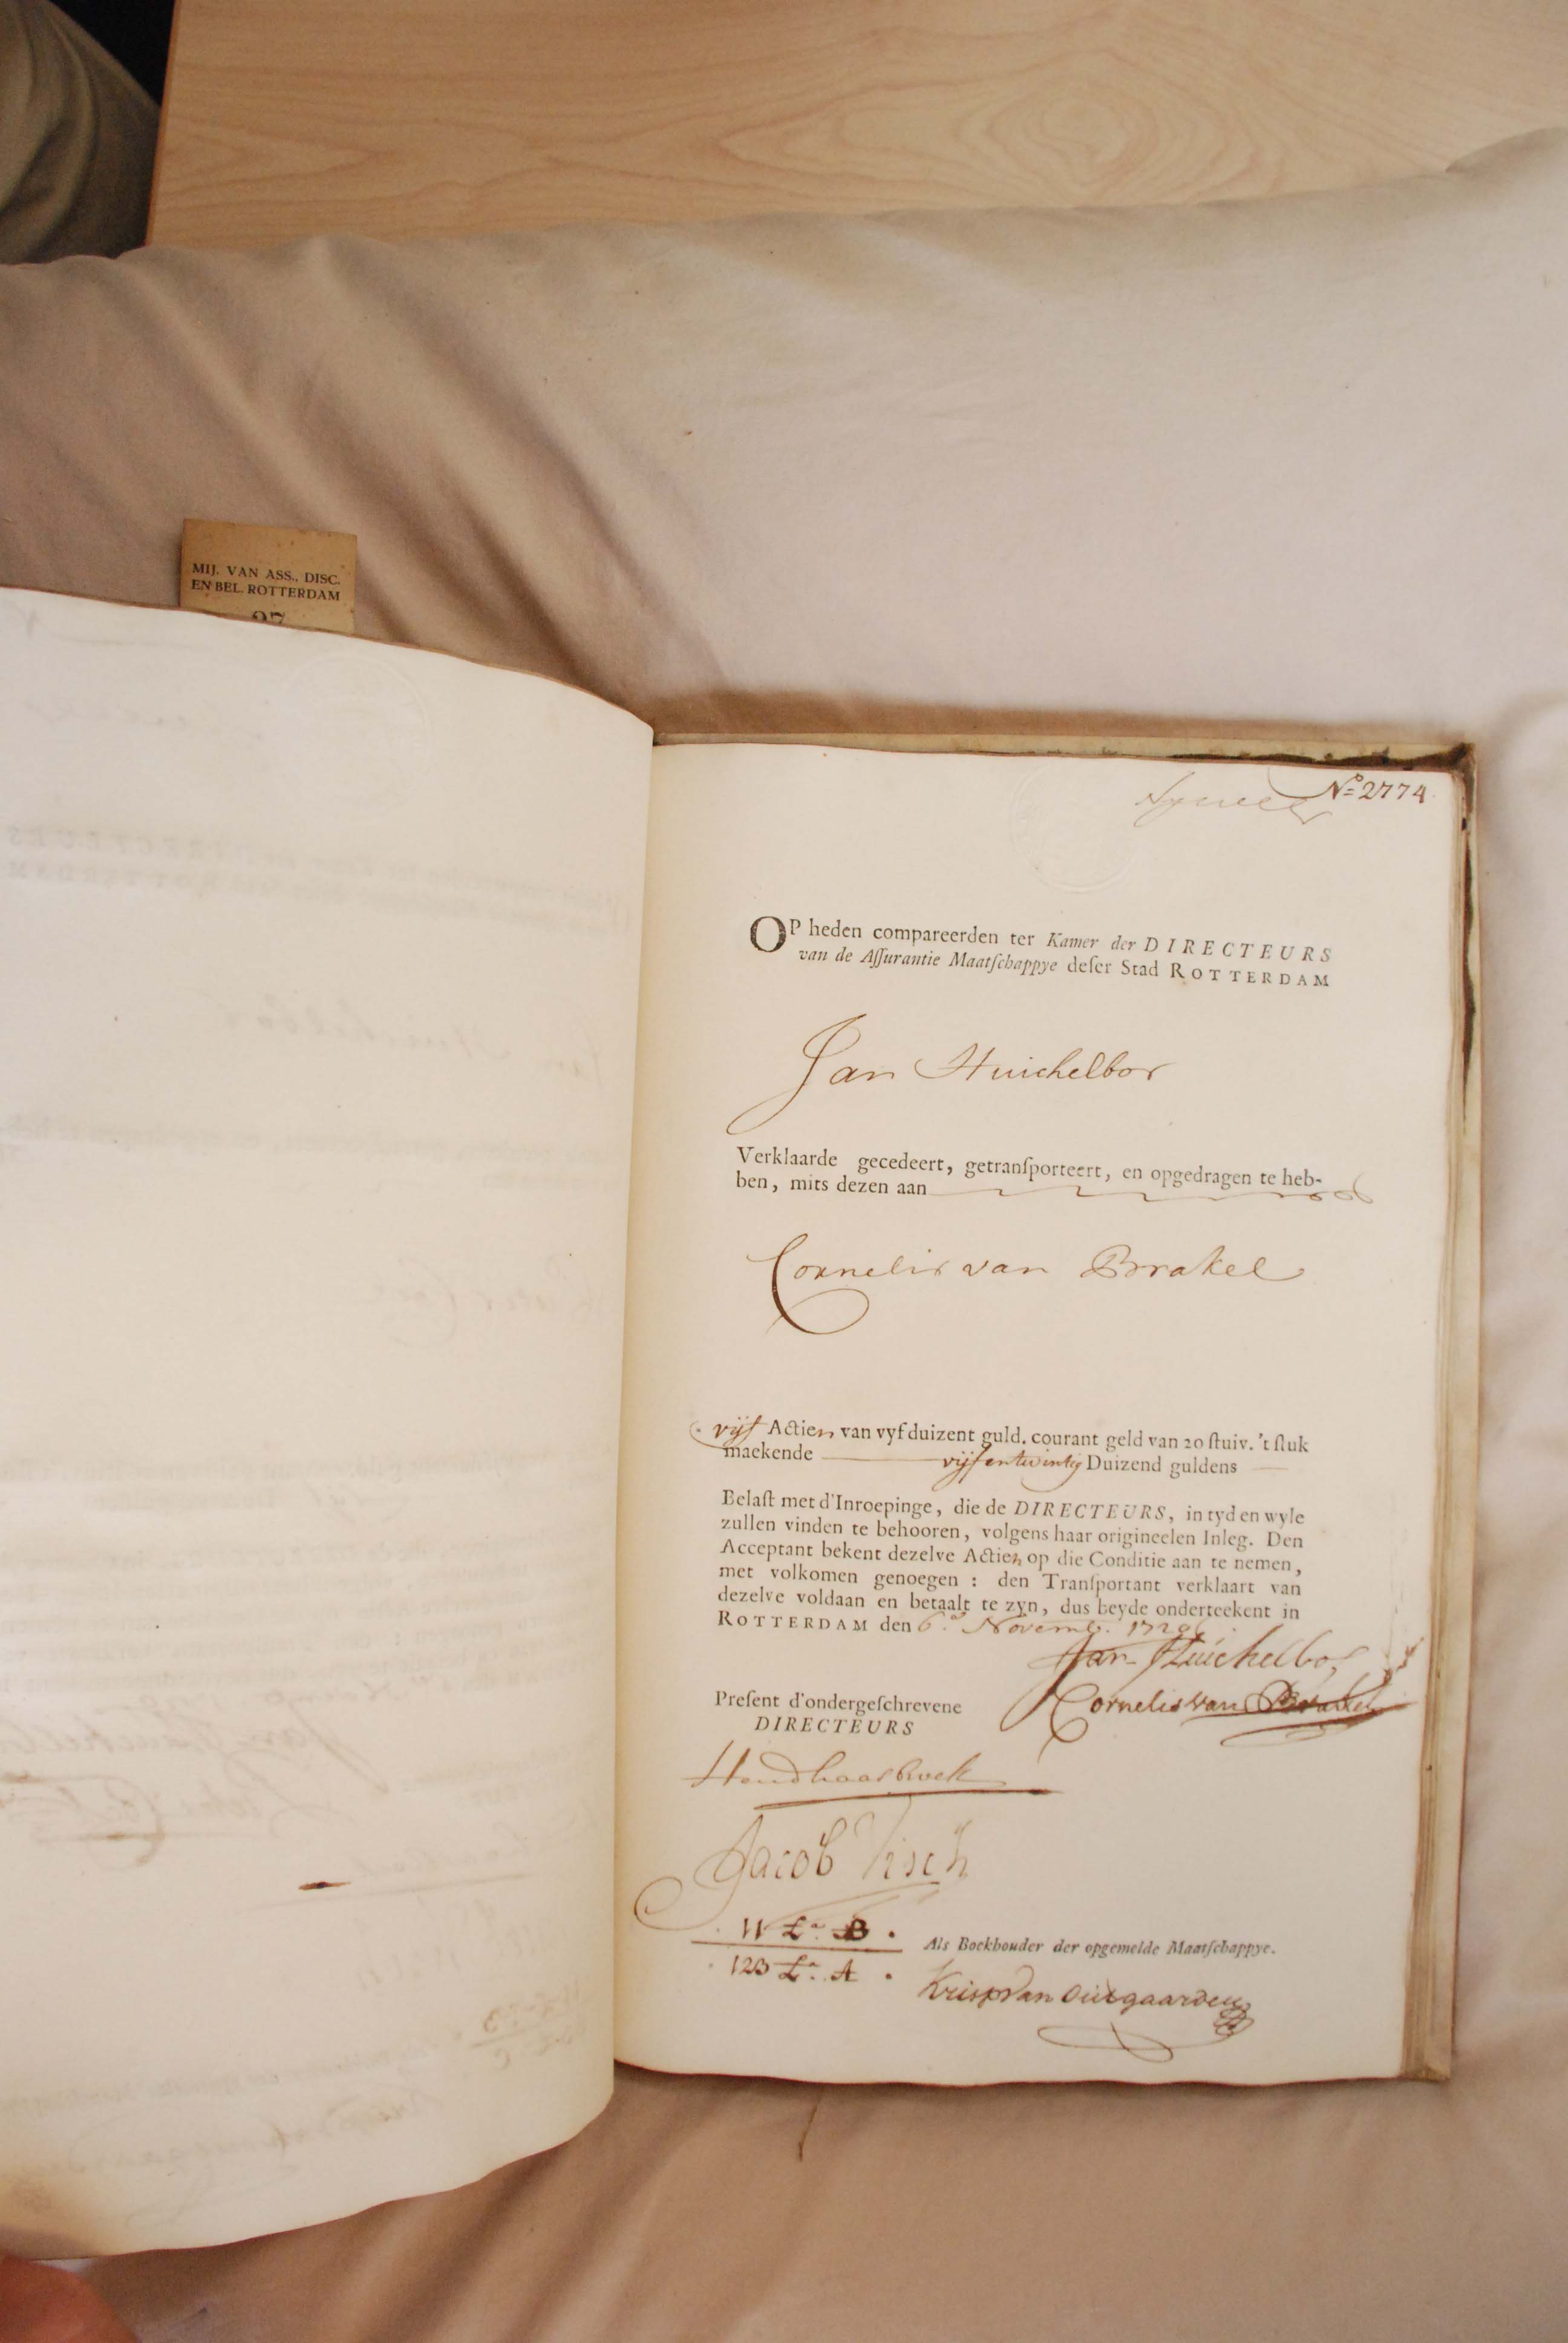 MIJ. VAN ASS., DISC.
EN BEL. ROTTERDAM
27
No 2774
OP heden compareerden ter Kamer der DIRECTEURS
van de Aſſurantie Maatſchappye deſer Stad ROTTERDAM
Jan Huichelbos
Verklaarde gecedeert, getranſporteert, en opgedragen te heb-
ben, mits dezen aan
Cornelis van Brakel
vijf Actien van vyf duizent guld. courant geld van 20 ſtuiv. 't ſtuk
maekende vijfentwintig Duizend guldens
Belaſt met d'Inroepinge, die de DIRECTEURS, in tyd en wyle
zullen vinden te behooren, volgens haar origineelen Inleg. Den
Acceptant bekent dezelve Actien op die Conditie aan te nemen,
met volkomen genoegen : den Tranſportant verklaart van
dezelve voldaan en betaalt te zyn, dus beyde onderteekent in
ROTTERDAM den 6.e Novemb.
Jan Huichelbos
Cornelis van Brakel
Preſent d'ondergeſchrevene
DIRECTEURS
Jacob Visch
11 La. B.
Als Boekhouder der opgemelde Maatſchappye.
123 La. A.
Krisp van Outgaarden